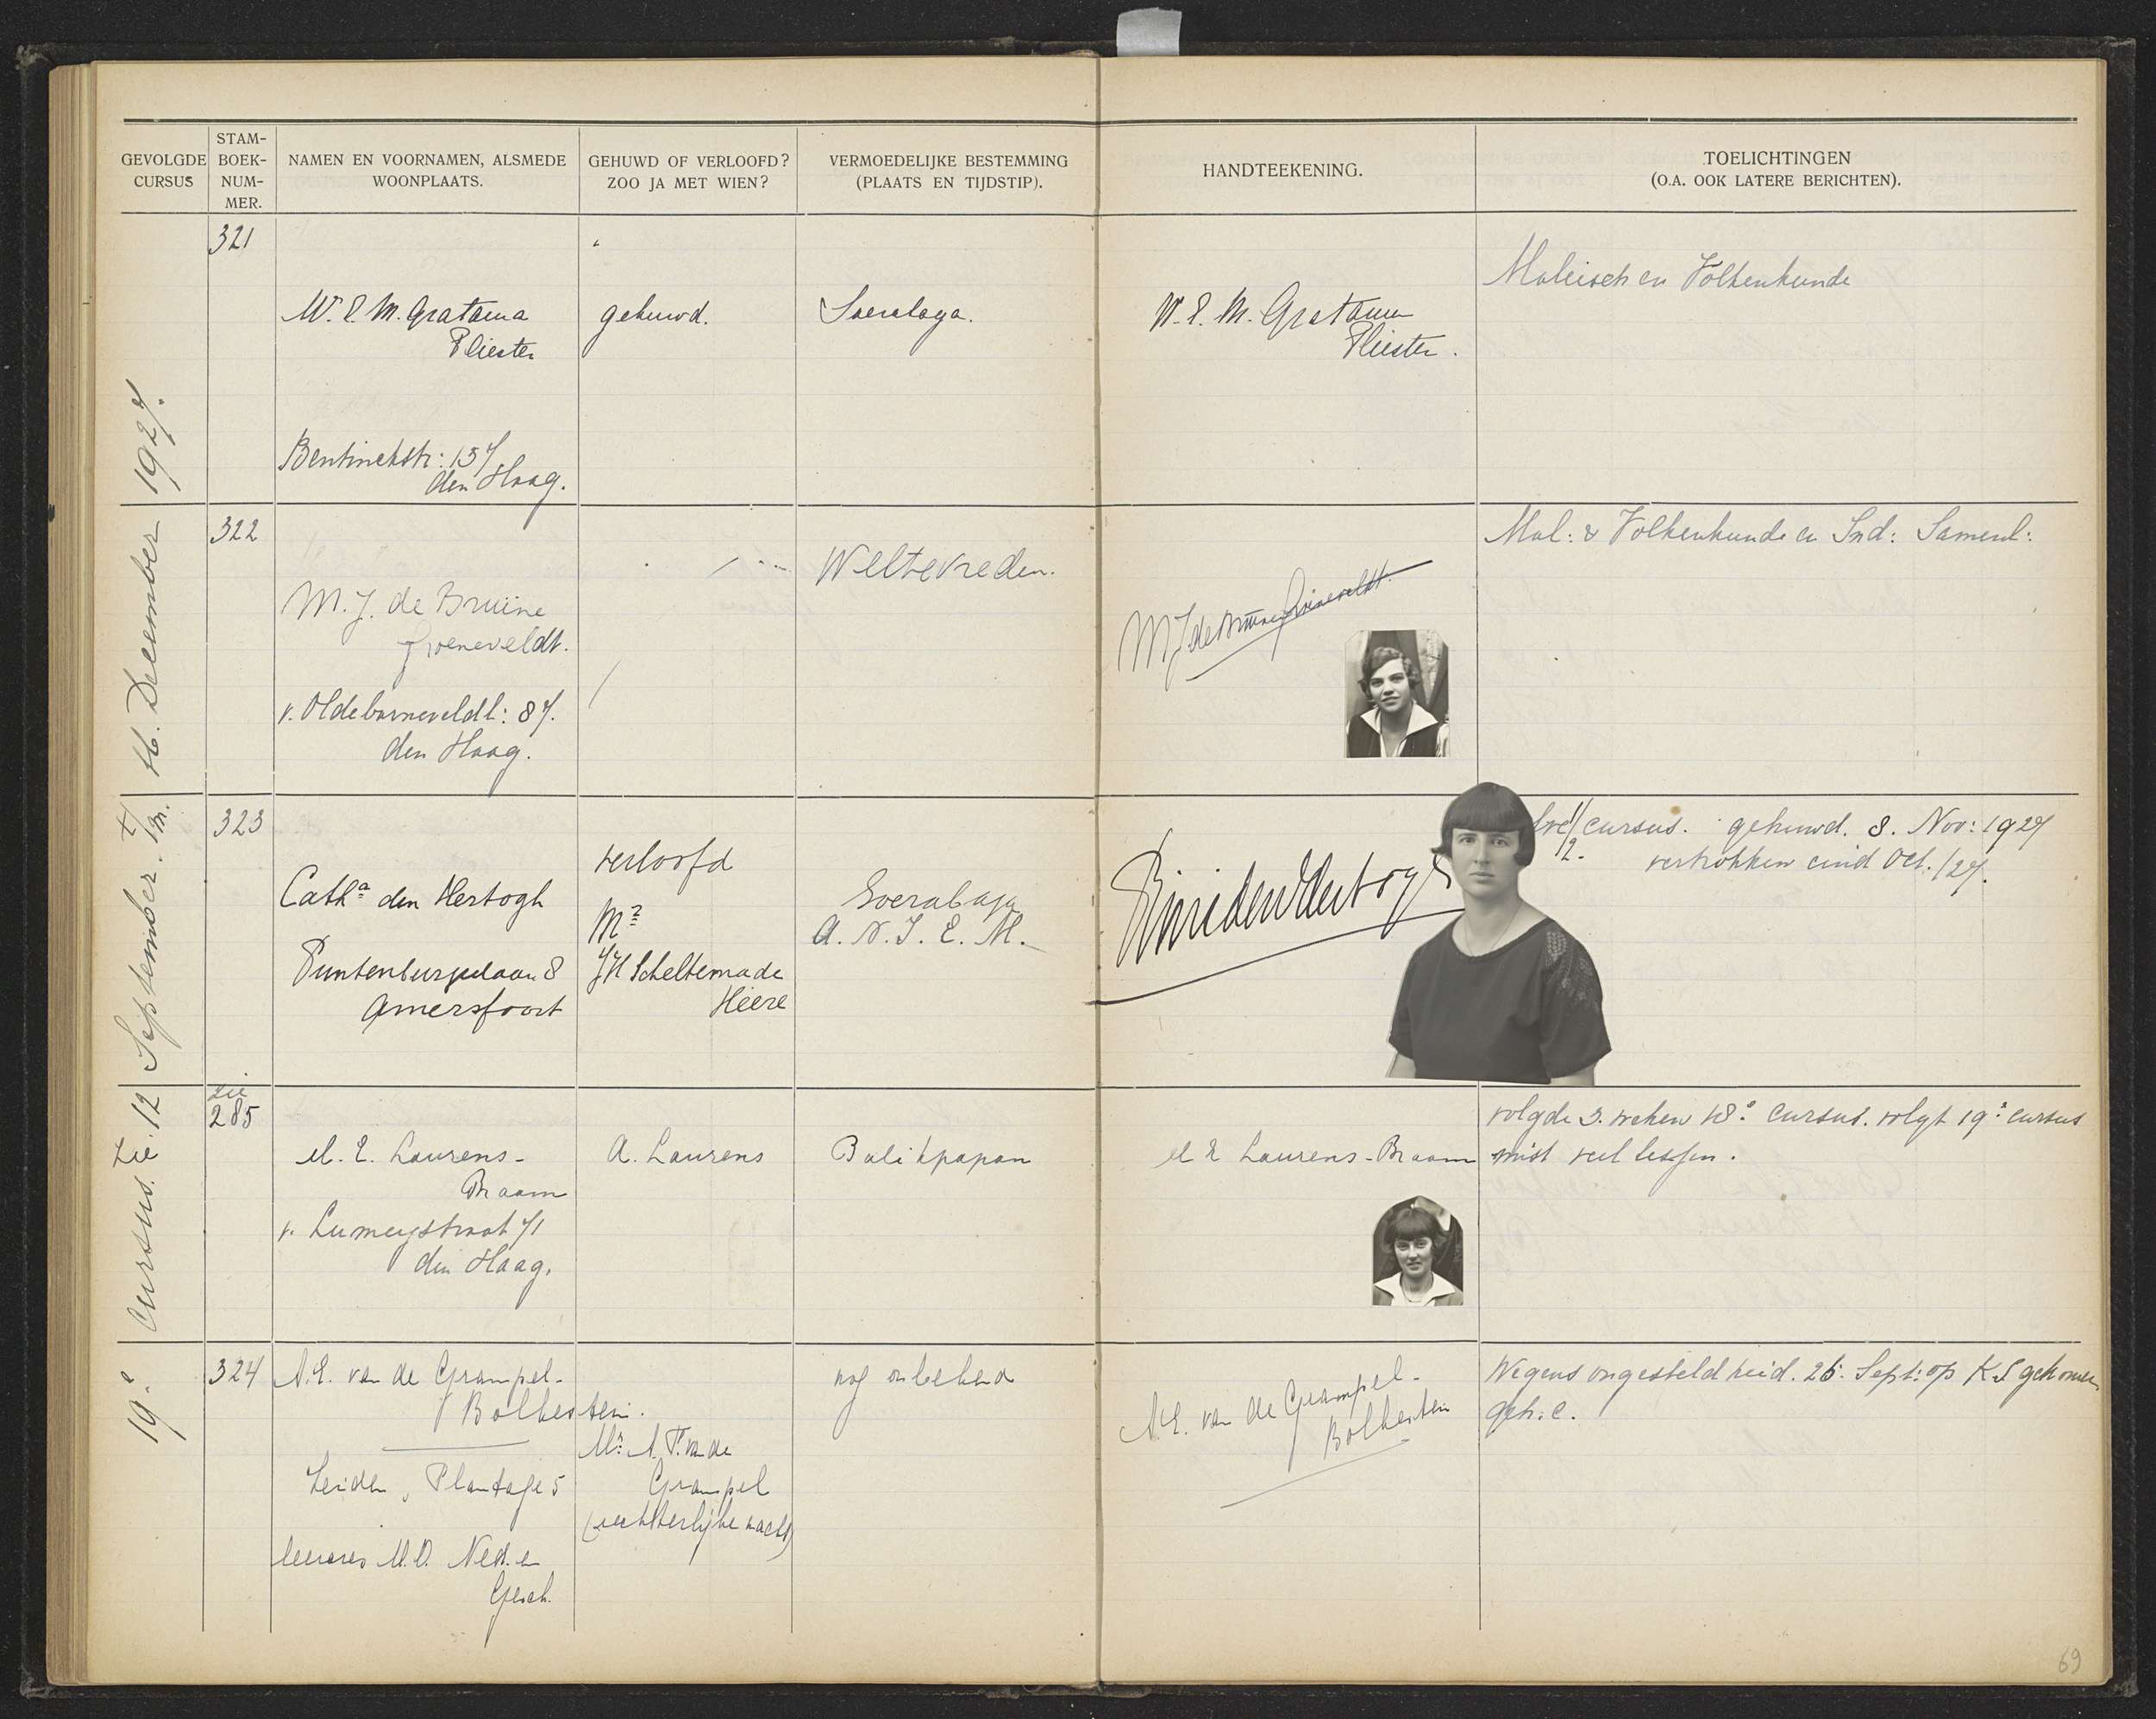 GEVOLGDE CURSUS
STAM-BOEK-NUM-MER.
NAMEN EN VOORNAMEN, ALSMEDE WOONPLAATS.
GEHUWD OF VERLOOFD? ZOO JA MET WIEN?
VERMOEDELIJKE BESTEMMING (PLAATS EN TIJDSTIP).
HANDTEEKENING.
TOELICHTINGEN (O.A. OOK LATERE BERICHTEN).
19e Cursus. Zie 12 September. t/m. 16. December 1927.
321
W. E. M. Gratama
Pliester
Bentinckstr: 157
den Haag.
gehuwd.
Soerabaya.
W. E. M. Gratama
Pliester.
Maleisch en Volkenkunde
322
M. J. de Bruïne
Groeneveldt.
v. Oldebarneveldl: 87.
den Haag.
Weltevreden.
M J de Bruïne Groeneveldt.
Mal: & Volkenkunde en Ind: Samenl:
323
Catha den Hertogh
Puntenburgelaan 8
Amersfoort
verloofd
Mr
JH Scheltema de
Heere
Soerabaja
A. N. I. E. M.
den Hertogh
cursus. gehuwd. 8. Nov: 1927
1/2. vertrokken eind Oct. /27.
zie
285
M. E. Laurens-
Braam
v. Lumeystraat 71
den Haag.
A. Laurens
Balikpapan
M E Laurens-Braam
volgde 3. weken 18e cursus. volgt 19e cursus
mist veel lessen.
324
A.E. van de Grampel-
Bolkestein.
Leiden, Plantage 5
leerares M.O. Ned. en
Gesch.
Mr A. P. van de
Grampel
(rechterlijke macht)
nog onbekend
A.E. van de Grampel-
Bolkestein
Wegens ongesteldheid. 26. Sept: op K.S gekomen
geh. c.
69